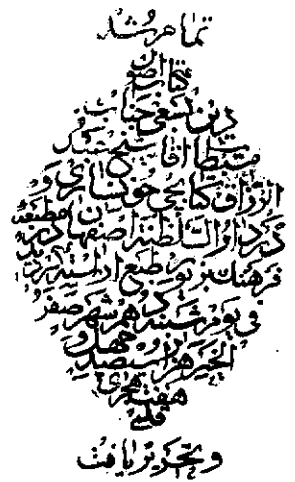 تمام شد
کتاب اصول
دین بسعی جناب
مستطاب اقا شیخ عبد
الرزاق کتابچی خونساری و
در دار السلطنه اصفهان در مطبعه
فرهنك بزیور طبع اراسته گردید
فی یوم شنبه دهم شهر صفر
الخیر هزار سیصد چهل و
هفت هجری
قلمی
و تحریر یافت